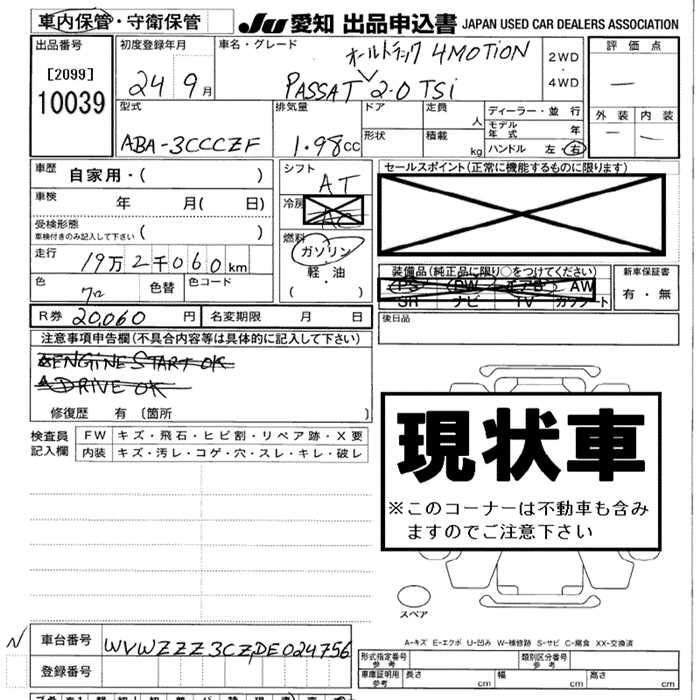 車内保管・守衛保管 JU 愛知 出品申込書 JAPAN USED CAR DEALERS ASSOCIATION
出品番号 [2099] 10039
初度登録年月 24 9月
車名・グレード オールトラック 4MOTION
PASSAT 2.0 TSi
2WD・4WD
評価点 ―
外装 ― 内装 ―
型式 ABA-3CCCZF
排気量 1.98cc
ドア 定員 人
形状 積載 kg
ディーラー・並行
モデル年式 年
ハンドル 左・右
車歴 自家用・( )
車検 年 月( 日)
受検形態
車検付きのみ記入して下さい ( )
走行 19万2千060km
色 クロ 色替 色コード
シフト AT
冷房 AC
燃料 ガソリン・軽・油
( )
セールスポイント(正常に機能するものに限ります)
装備品(純正品に限り○をつけてください)
PS PW エアB AW
SR ナビ TV カワシート
新車保証書 有・無
R券 20,060 円 名変期限 月 日
後日品
注意事項申告欄(不具合内容等は具体的に記入して下さい)
ENGINE START OK
DRIVE OK
修復歴 有〔箇所 〕
検査員記入欄
FW キズ・飛石・ヒビ割・リペア跡・X要
内装 キズ・汚レ・コゲ・穴・スレ・キレ・破レ
現状車
※このコーナーは不動車も含み
ますのでご注意下さい
スペア
A-キズ E-エクボ U-凹み W-補修跡 S-サビ C-腐食 XX-交換済
車台番号 WVWZZZ3CZDE024756
登録番号
型式指定番号 参考 類別区分番号 参考
車庫証明用 参考 長さ cm 幅 cm 高さ cm